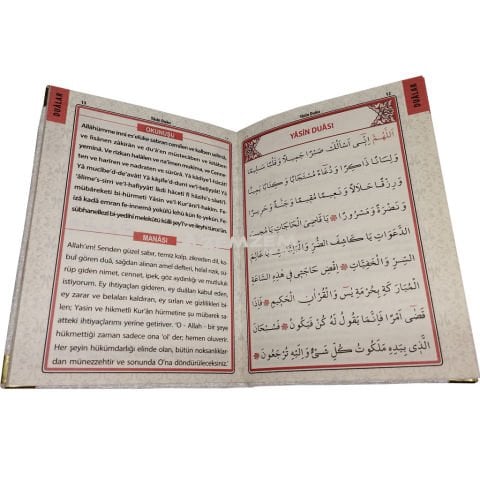 DUÂLAR
13
Yâsin Duâsı
OKUNUŞU
Allâhümme innî es'elüke sabran cemîlen ve kalben selîmâ,
ve lisânen zâkirân ve du'âen müstecâben ve kitâben
yemînâ. Ve rızkan halâlen ve na'îmen mukîma, ve Cenne-
ten ve harîren ve nadraten ve sürûrâ. Yâ kâdiye'l-hâcât!
Yâ mucîbe'd-de'avât! Yâ kâşife'd-durri ve'l-beliyyât! Yâ
'âlime's-sirri ve'l-hafiyyât! İkdi hâcetî fî hâzihi's-sâati'l-
mübâreketi bi-hürmeti Yâsîn ve'l-Kur'âni'l-hakîm. Fe
izâ kadâ emran fe-innemâ yekûlü lehû kün fe-yekûn. Fe
sübhanellezî bi-yedihî melekûtü külli şey'in ve ileyhi türceûn.
MANÂSI
Allah'ım! Senden güzel sabır, temiz kalp, zikreden dil, ka-
bul gören duâ, sağdan alınan amel defteri, helal rızık, sü-
rüp giden nimet, cennet, ipek, göz aydınlığı ve mutluluk
istiyorum. Ey ihtiyaçları gideren, ey duâları kabul eden,
ey zarar ve belaları kaldıran, ey sırları ve gizlilikleri bi-
len; Yasin ve hikmetli Kur'ân hürmetine şu mübarek sa-
atteki ihtiyaçlarımı yerine getiriver. 'O - Allah - bir şeye
hükmettiği zaman sadece ona 'ol' der; hemen oluverir.
Her şeyin hükümdarlığı elinde olan, bütün noksanlıklar-
dan münezzehtir ve sonunda O'na döndürüleceksiniz.'
DUÂLAR
12
Yâsin Duâsı
YÂSİN DUÂSI
اَللّٰهُمَّ اِنّٖى اَسْاَلُكَ صَبْرًا جَمٖيلًا وَ قَلْبًا سَلٖيمًا
وَ لِسَانًا ذَاكِرًا وَ دُعَاءً مُسْتَجَابًا وَ كِتَابًا يَمٖينًا
وَ رِزْقًا حَلَالًا وَ نَعٖيمًا مُقٖيمًا وَ جَنَّةً وَ حَرٖيرًا
وَ نَضْرَةً وَ سُرُورًا يَا قَاضِىَ الْحَاجَاتِ يَا مُجٖيبَ
الدَّعَوَاتِ يَا كَاشِفَ الضُّرِّ وَ الْبَلِيَّاتِ يَا عَالِمَ
السِّرِّ وَ الْخَفِيَّاتِ اِقْضِ حَاجَتٖى فٖى هٰذِهِ السَّاعَةِ
الْمُبَارَكَةِ بِحُرْمَةِ يٰسٓ وَ الْقُرْاٰنِ الْحَكٖيمِ فَاِذَا
قَضٰى اَمْرًا فَاِنَّمَا يَقُولُ لَهُ كُنْ فَيَكُونُ فَسُبْحَانَ
الَّذٖى بِيَدِهٖ مَلَكُوتُ كُلِّ شَىْءٍ وَ اِلَيْهِ تُرْجَعُونَ